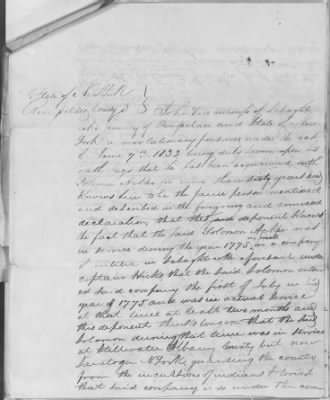 State of N York
Rensselaer County SS John Francisco of Schaghti
coke county of Rensselaer and State of New
York a revolutionary pensioner under the act
of June 7th 1832 being duly sworn upon his
oath says that he has been acquainted with
Solomon Acker for more than sixty years and
knows him to be the same person mentioned
and described in the foregoing and annexed
declaration, that this deponent knows
the fact that the said Solomon Acker was
in service during the year 1775 in a company
of militia in Schaghticoke aforesaid under
captain Hicks that the said Solomon enter
ed said company the first of July in the
year of 1775 and was in actual service
at that time at least two months and
this deponent thinks longer that the said
Solomon during that time was in service
at Stillwater Albany County but now
Saratoga N York guarding the country
from the incursions of indians & tories
that said company was under the com